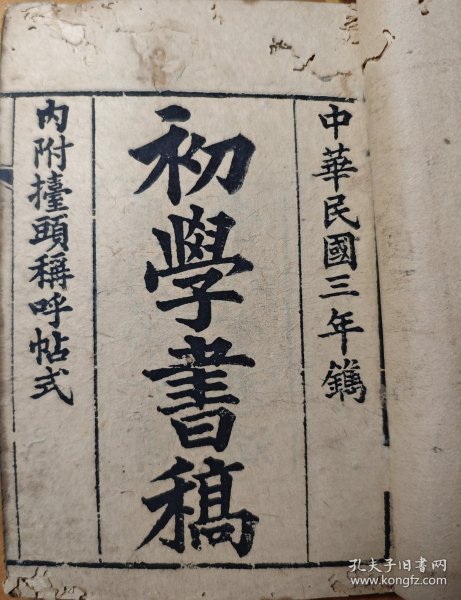 中華民國三年鐫
初學書稿
内附擡頭稱呼帖式
孔夫子旧书网
www.kongfz.com